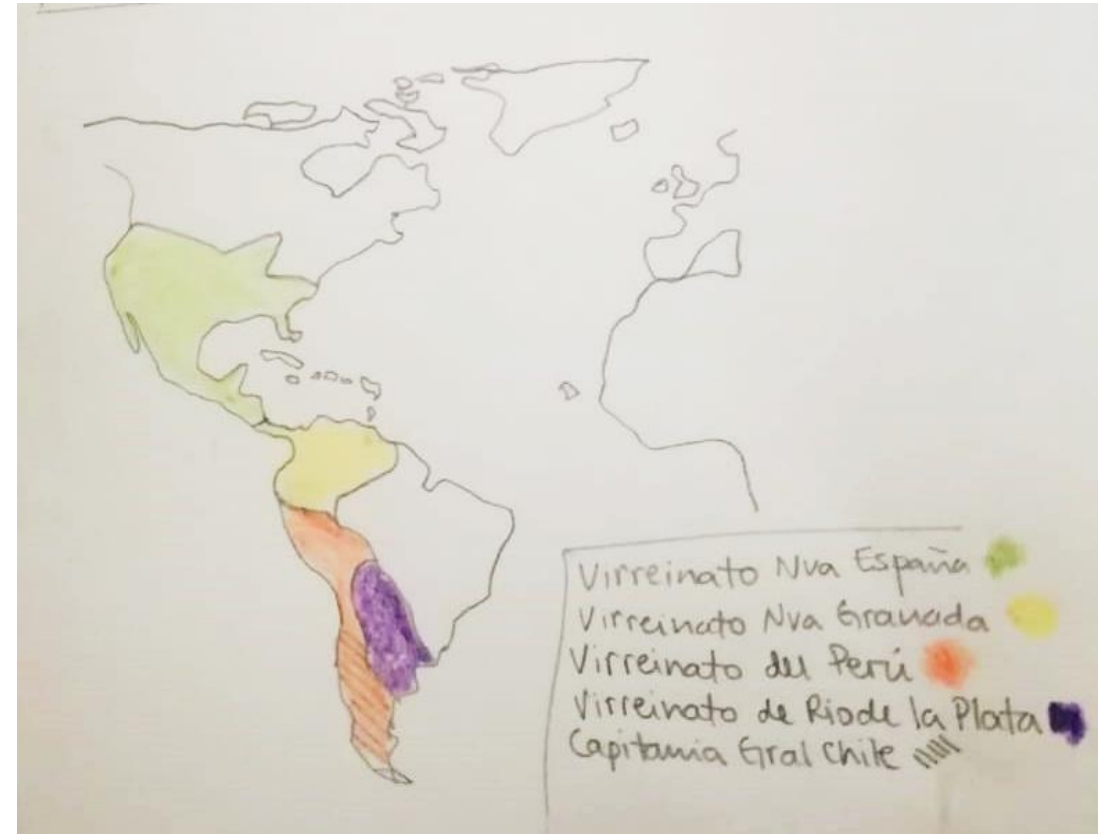 Virreinato Nva España
Virreinato Nva Granada
Virreinato del Perú
Virreinato de Rio de la Plata
Capitania Gral Chile